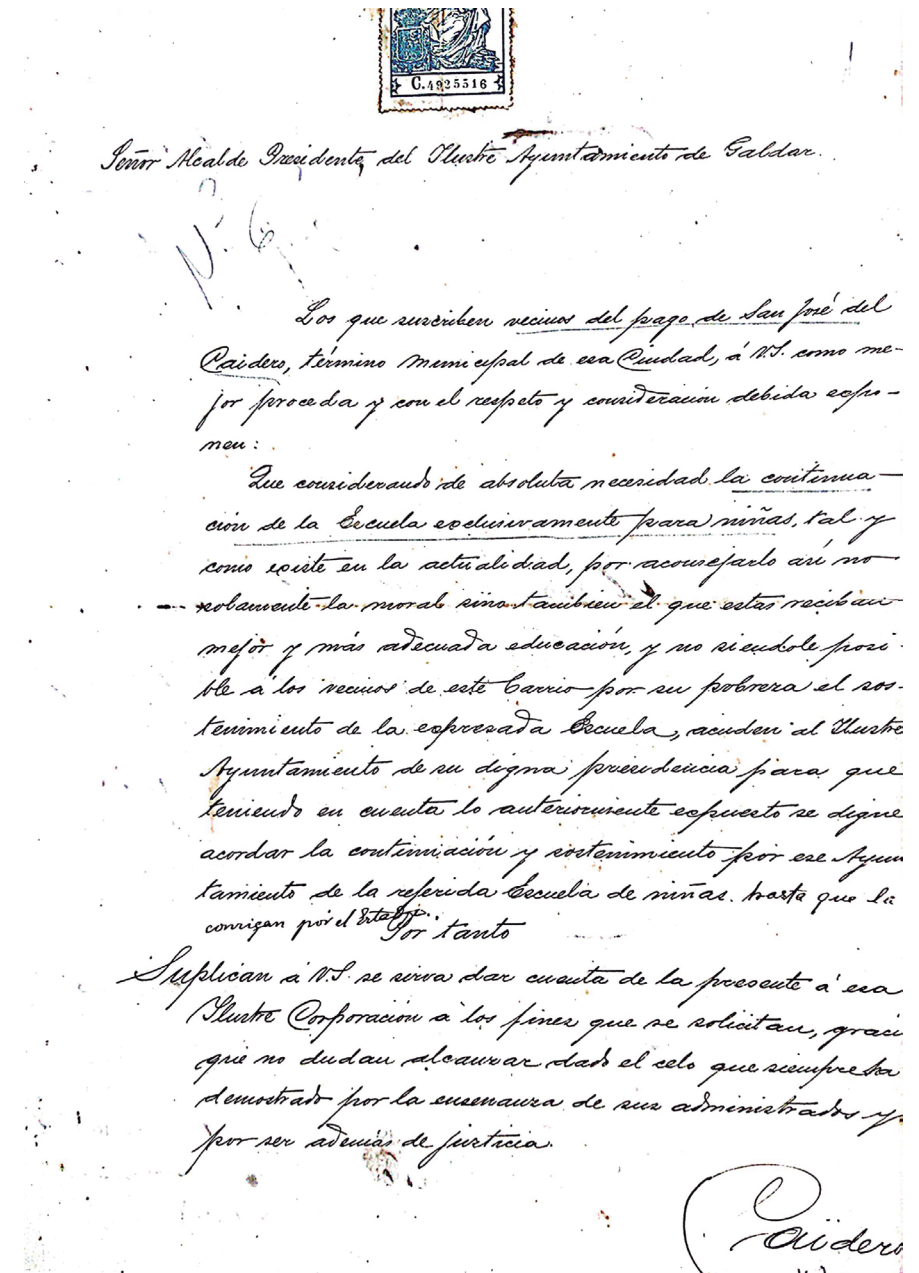 C.4925516
Señor Alcalde Presidente, del Ilustre Ayuntamiento de Galdar.
Nº 6
Los que suscriben vecinos del pago de San José del
Caidero, término municipal de esa Ciudad, á V.S. como me-
jor proceda y con el respeto y consideración debida expo-
nen:
Que considerando de absoluta necesidad la continua-
ción de la Escuela exclusivamente para niñas, tal y
como existe en la actualidad, por aconsejarlo así no
solamente la moral sino tambien el que estas reciban
mejor y más adecuada educación, y no siendole posi-
ble á los vecinos de este barrio por su pobreza el sos-
tenimiento de la expresada Escuela, acuden al Ilustre
Ayuntamiento de su digna presidencia para que
teniendo en cuenta lo anteriormente expuesto se digne
acordar la continuación y sostenimiento por ese Ayun
tamiento de la referida Escuela de niñas. hasta que la
por el Estado.
Por tanto
Suplican á V.S. se sirva dar cuenta de la presente á esa
Ilustre Corporación á los fines que se solicitan, graci
que no dudan alcanzar dado el celo que siempre ha
demostrado por la ensenanza de sus administrados y
por ser además de justicia.
Caidero